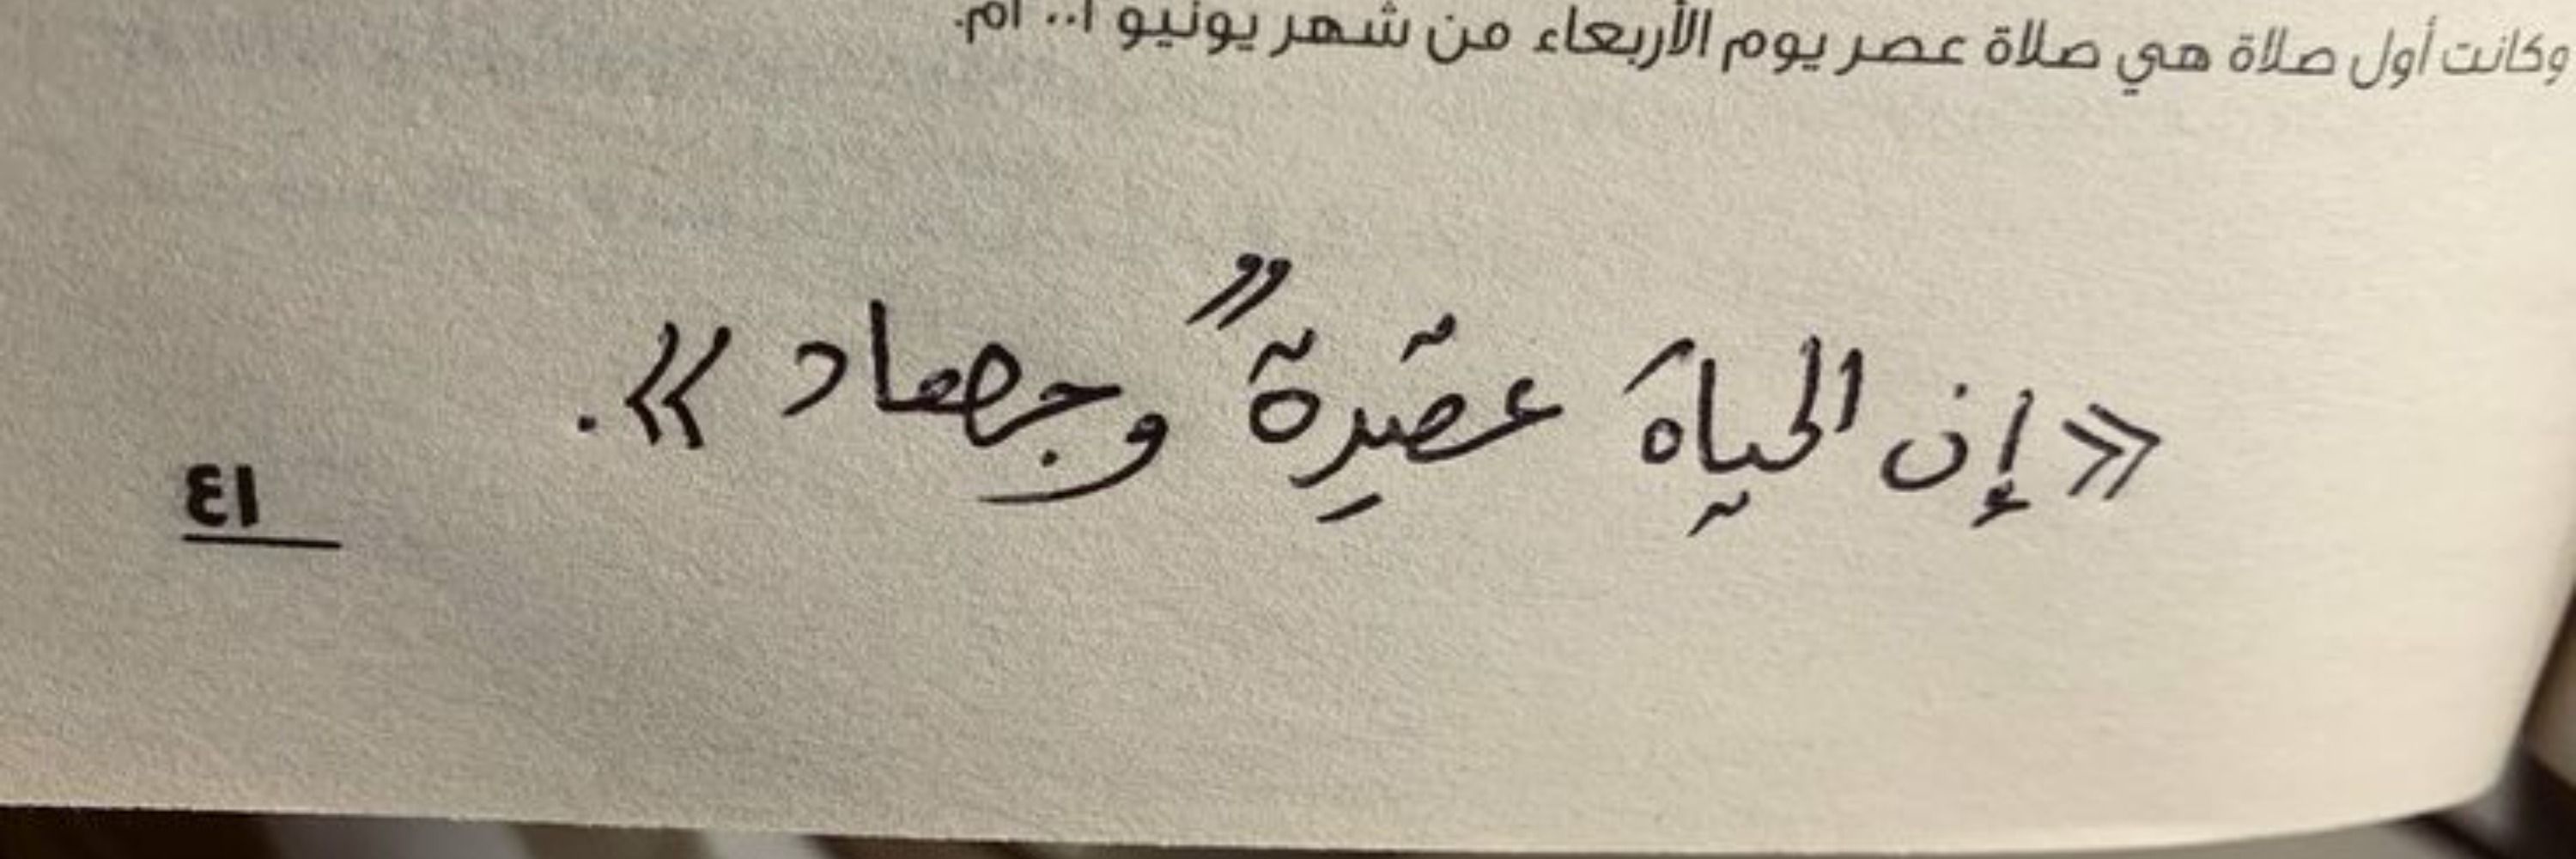 وكانت أول صلاة هي صلاة عصر يوم الأربعاء من شهر يونيو ٢٠٠١م.
«إن الحياةَ عقيدةٌ وجهاد».
٤١